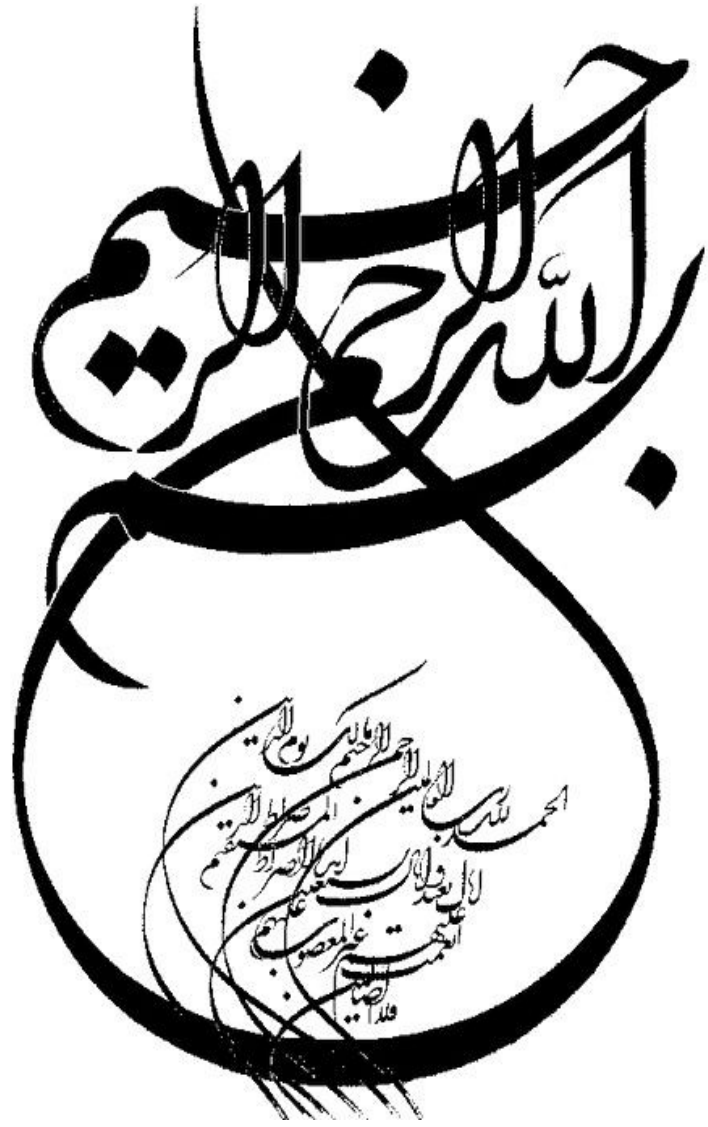 بسم الله الرحمن الرحیم
الحمد لله رب العالمین
الرحمن الرحیم مالک یوم الدین
ایاک نعبد وایاک نستعین
اهدنا الصراط المستقیم
صراط الذین
انعمت علیهم غیر المغضوب علیهم
ولا الضالین